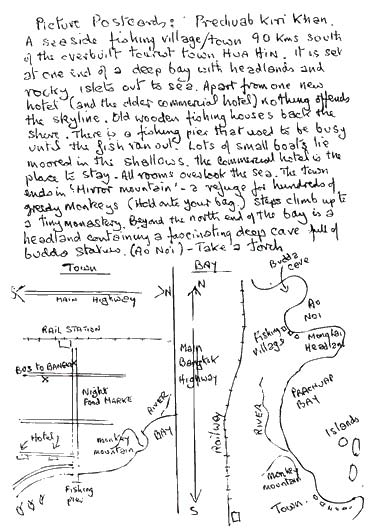 Picture Postcards: Prechuab Kiri Khan.
A seaside fishing village/town 90 Kms south
of the overbuilt tourist town Hua Hin. It is set
at one end of a deep bay with headlands and
rocky islets out to sea. Apart from one new
hotel (and the older commercial hotel) nothing offends
the skyline. Old wooden fishing houses back the
shore. There is a fishing pier that used to be busy
until the fish ran out. Lots of small boats lie
moored in the shallows. The commercial hotel is the
place to stay - All rooms overlook the sea. The town
ends in 'Mirror mountain' - a refuge for hundreds of
greedy monkeys (Hold onto your bag.) Steps climb up to
a tiny monastery. Beyond the north end of the bay is a
headland containing a fascinating deep cave full of
budda statues. (Ao Noi) - Take a torch
TOWN
S
N
MAIN Highway
RAIL STATION
BUS TO BANGKOK
Night
Food MARKE
Hotel
monkey
mountain
RIVER
BAY
Fishing
pier
BAY
N
Main
Bangkok
Highway
S
Budda
cave
AO
NOI
Fishing
village
Headland
PRACHUAP
BAY
Railway
RIVER
Islands
monkey
mountain
Town.